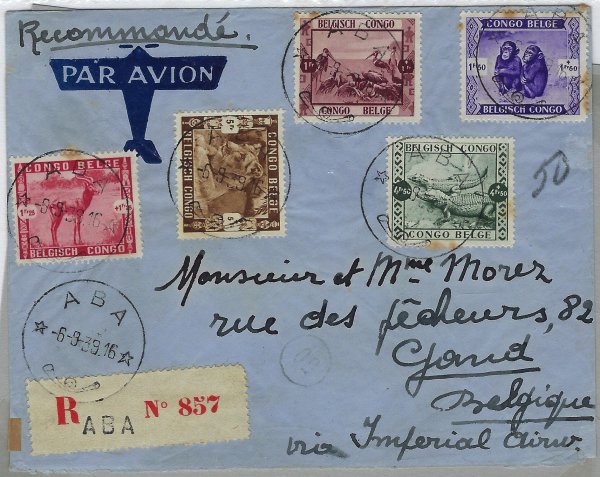 Recommandé.
PAR AVION
BELGISCH CONGO
CONGO BELGE
CONGO BELGE
1Fr50 + 1Fr50
BELGISCH CONGO
CONGO BELGE
1Fr25
BELGISCH CONGO
CONGO BELGE
BELGISCH CONGO
5Fr
5
BELGISCH CONGO
4Fr50 4Fr50
CONGO BELGE
ABA
-6-9-39.16
50
Monsieur et Mme Morez
rue des pêcheurs, 82
Gand
Belgique
via Imperial Airw.
ABA
-6-9-39.16
R ABA No 857